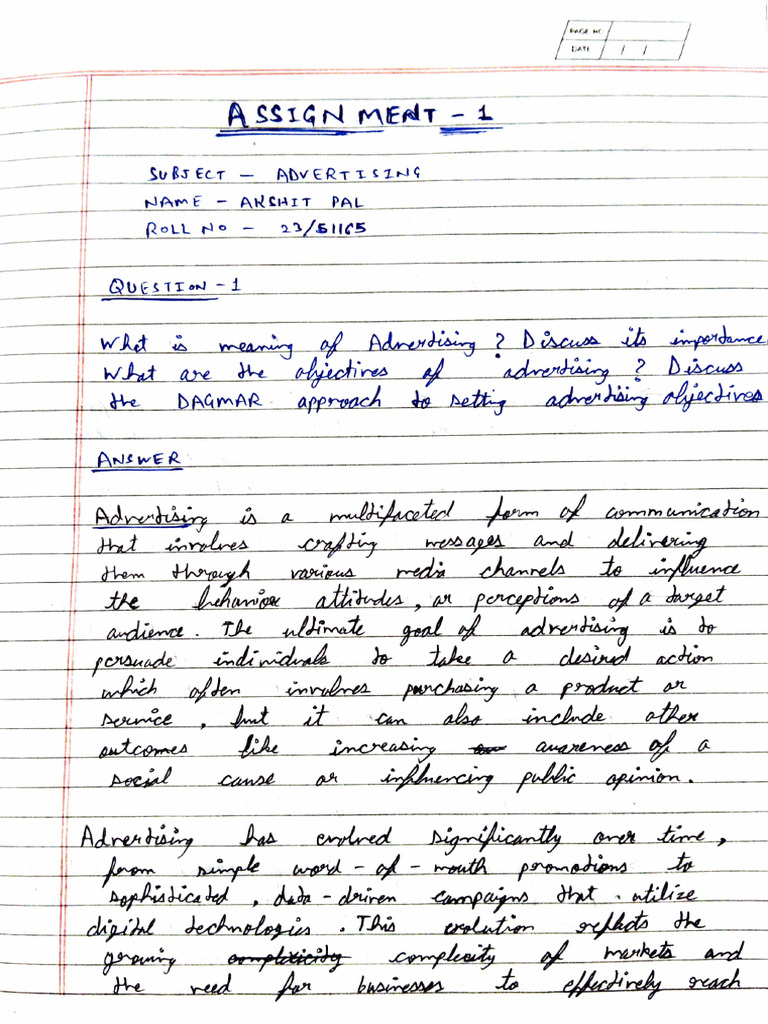 PAGE NO
DATE / /
ASSIGNMENT - 1
SUBJECT - ADVERTISING
NAME - AKSHIT PAL
ROLL NO - 23/51165
QUESTION - 1
What is meaning of Advertising ? Discuss its importance.
What are the objectives of advertising ? Discuss
the DAGMAR approach to setting advertising objectives
ANSWER
Advertising is a multifaceted form of communication
that involves crafting messages and delivering
them through various media channels to influence
the behavior attitudes, or perceptions of a target
audience. The ultimate goal of advertising is to
persuade individuals to take a desired action
which often involves purchasing a product or
service, but it can also include other
outcomes like increasing awareness of a
social cause or influencing public opinion.
Advertising has evolved significantly over time,
from simple word-of-mouth promotions to
sophisticated, data-driven campaigns that utilize
digital technologies. This evolution reflects the
growing complexity of markets and
the need for businesses to effectively reach